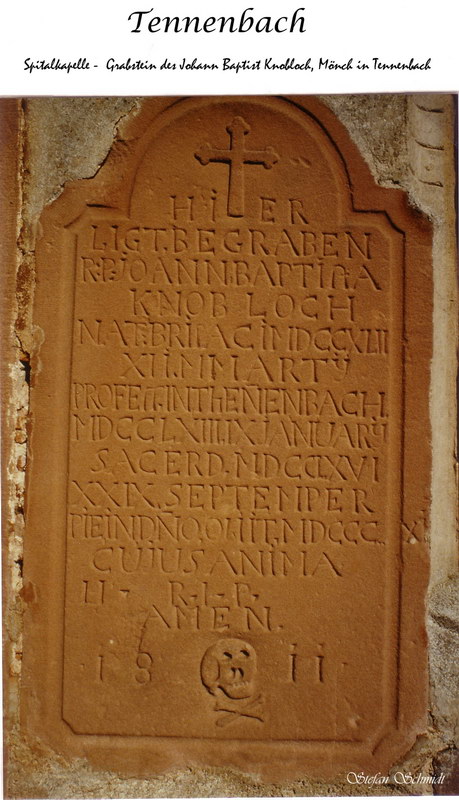 Tennenbach
Spitalkapelle - Grabstein des Johann Baptist Knobloch, Mönch in Tennenbach
HIER
LIGT.BEGRABEN
R:P:IOANN BAPTISTA
KNOBLOCH
NAT:BRISACI MDCCXLII
XII.MMARTÿ
PROFESS.IN THENENBACH.
MDCCLXIIII.IX IANUARÿ
SACERD.MDCCLXVI
XXIX.SEPTEMPER
PIE IN DÑO.OBIIT.MDCCC.XI
CUIUS ANIMA
LI - R-I-P.
AMEN.
·18 11·
Stefan Schmidt